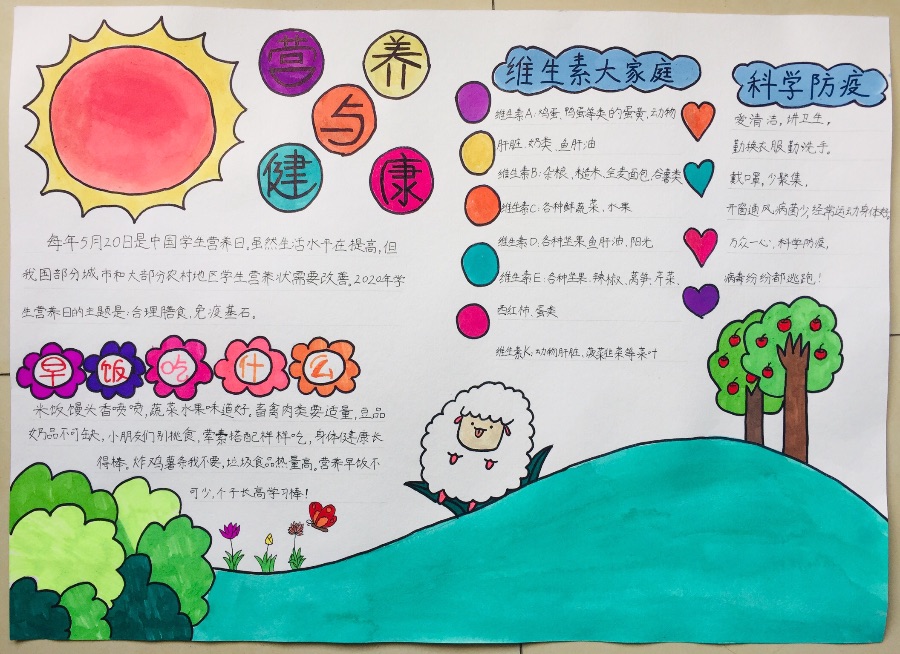 营养
与
健康
每年5月20日是中国学生营养日。虽然生活水平在提高,但
我国部分城市和大部分农村地区学生营养状需要改善。2020年学
生营养日的主题是:合理膳食,免疫基石。
早饭吃什么
米饭馒头香喷喷,蔬菜水果味道好。畜禽肉类要适量,豆品
奶品不可缺,小朋友们别挑食,荤素搭配样样吃,身体健康长
得棒。炸鸡薯条我不要,垃圾食品热量高。营养早饭不
可少,个子长高学习棒!
维生素大家庭
维生素A:鸡蛋、鸭蛋等类的蛋黄,动物
肝脏、奶类、鱼肝油
维生素B:杂粮、糙米、全麦面包、谷薯类
维生素C:各种鲜蔬菜、水果
维生素D:各种坚果鱼肝油、阳光
维生素E:各种坚果、辣椒、莴笋、芹菜、
西红柿、蛋类
维生素K:动物肝脏、菠菜韭菜等菜叶
科学防疫
爱清洁,讲卫生,
勤换衣服勤洗手。
戴口罩,少聚集,
开窗通风病菌少,经常运动身体好
万众一心,科学防疫,
病毒纷纷都逃跑!